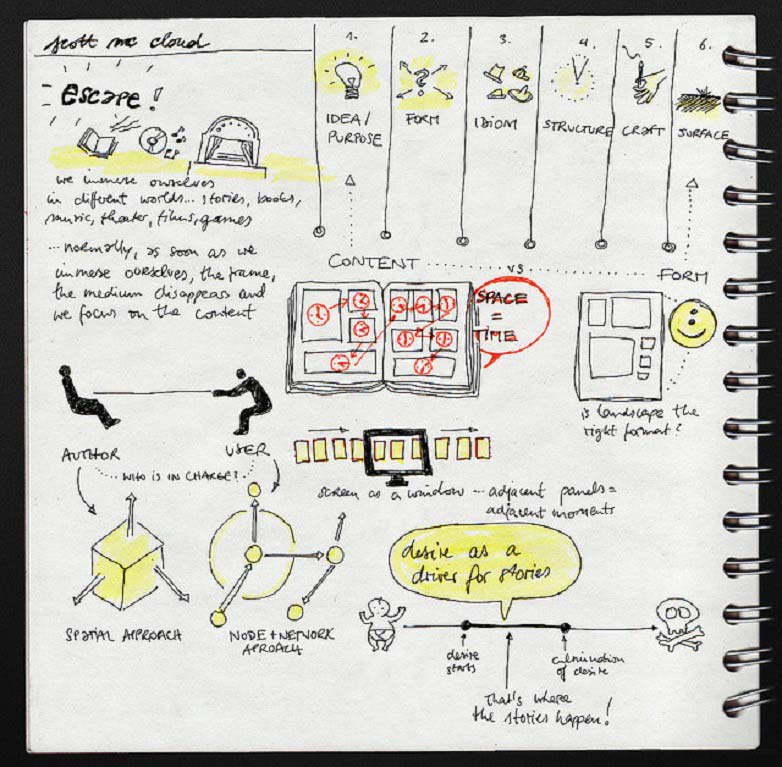 scott mc cloud
Escape!
we immerse ourselves
in different worlds... stories, books,
music, theater, films, games
...normally, as soon as we
immerse ourselves, the frame,
the medium disappears and
we focus on the content
1.
2.
3.
4.
5.
6.
IDEA/
PURPOSE
FORM
IDIOM
STRUCTURE
CRAFT
SURFACE
?
CONTENT
VS
FORM
SPACE
=
TIME
is landscape the
right format?
AUTHOR
USER
WHO IS IN CHARGE?
screen as a window ... adjacent panels =
adjacent moments
SPATIAL APPROACH
NODE + NETWORK
APROACH
desire as a
driver for stories
desire
starts
culmination
of desire
that's where
the stories happen!